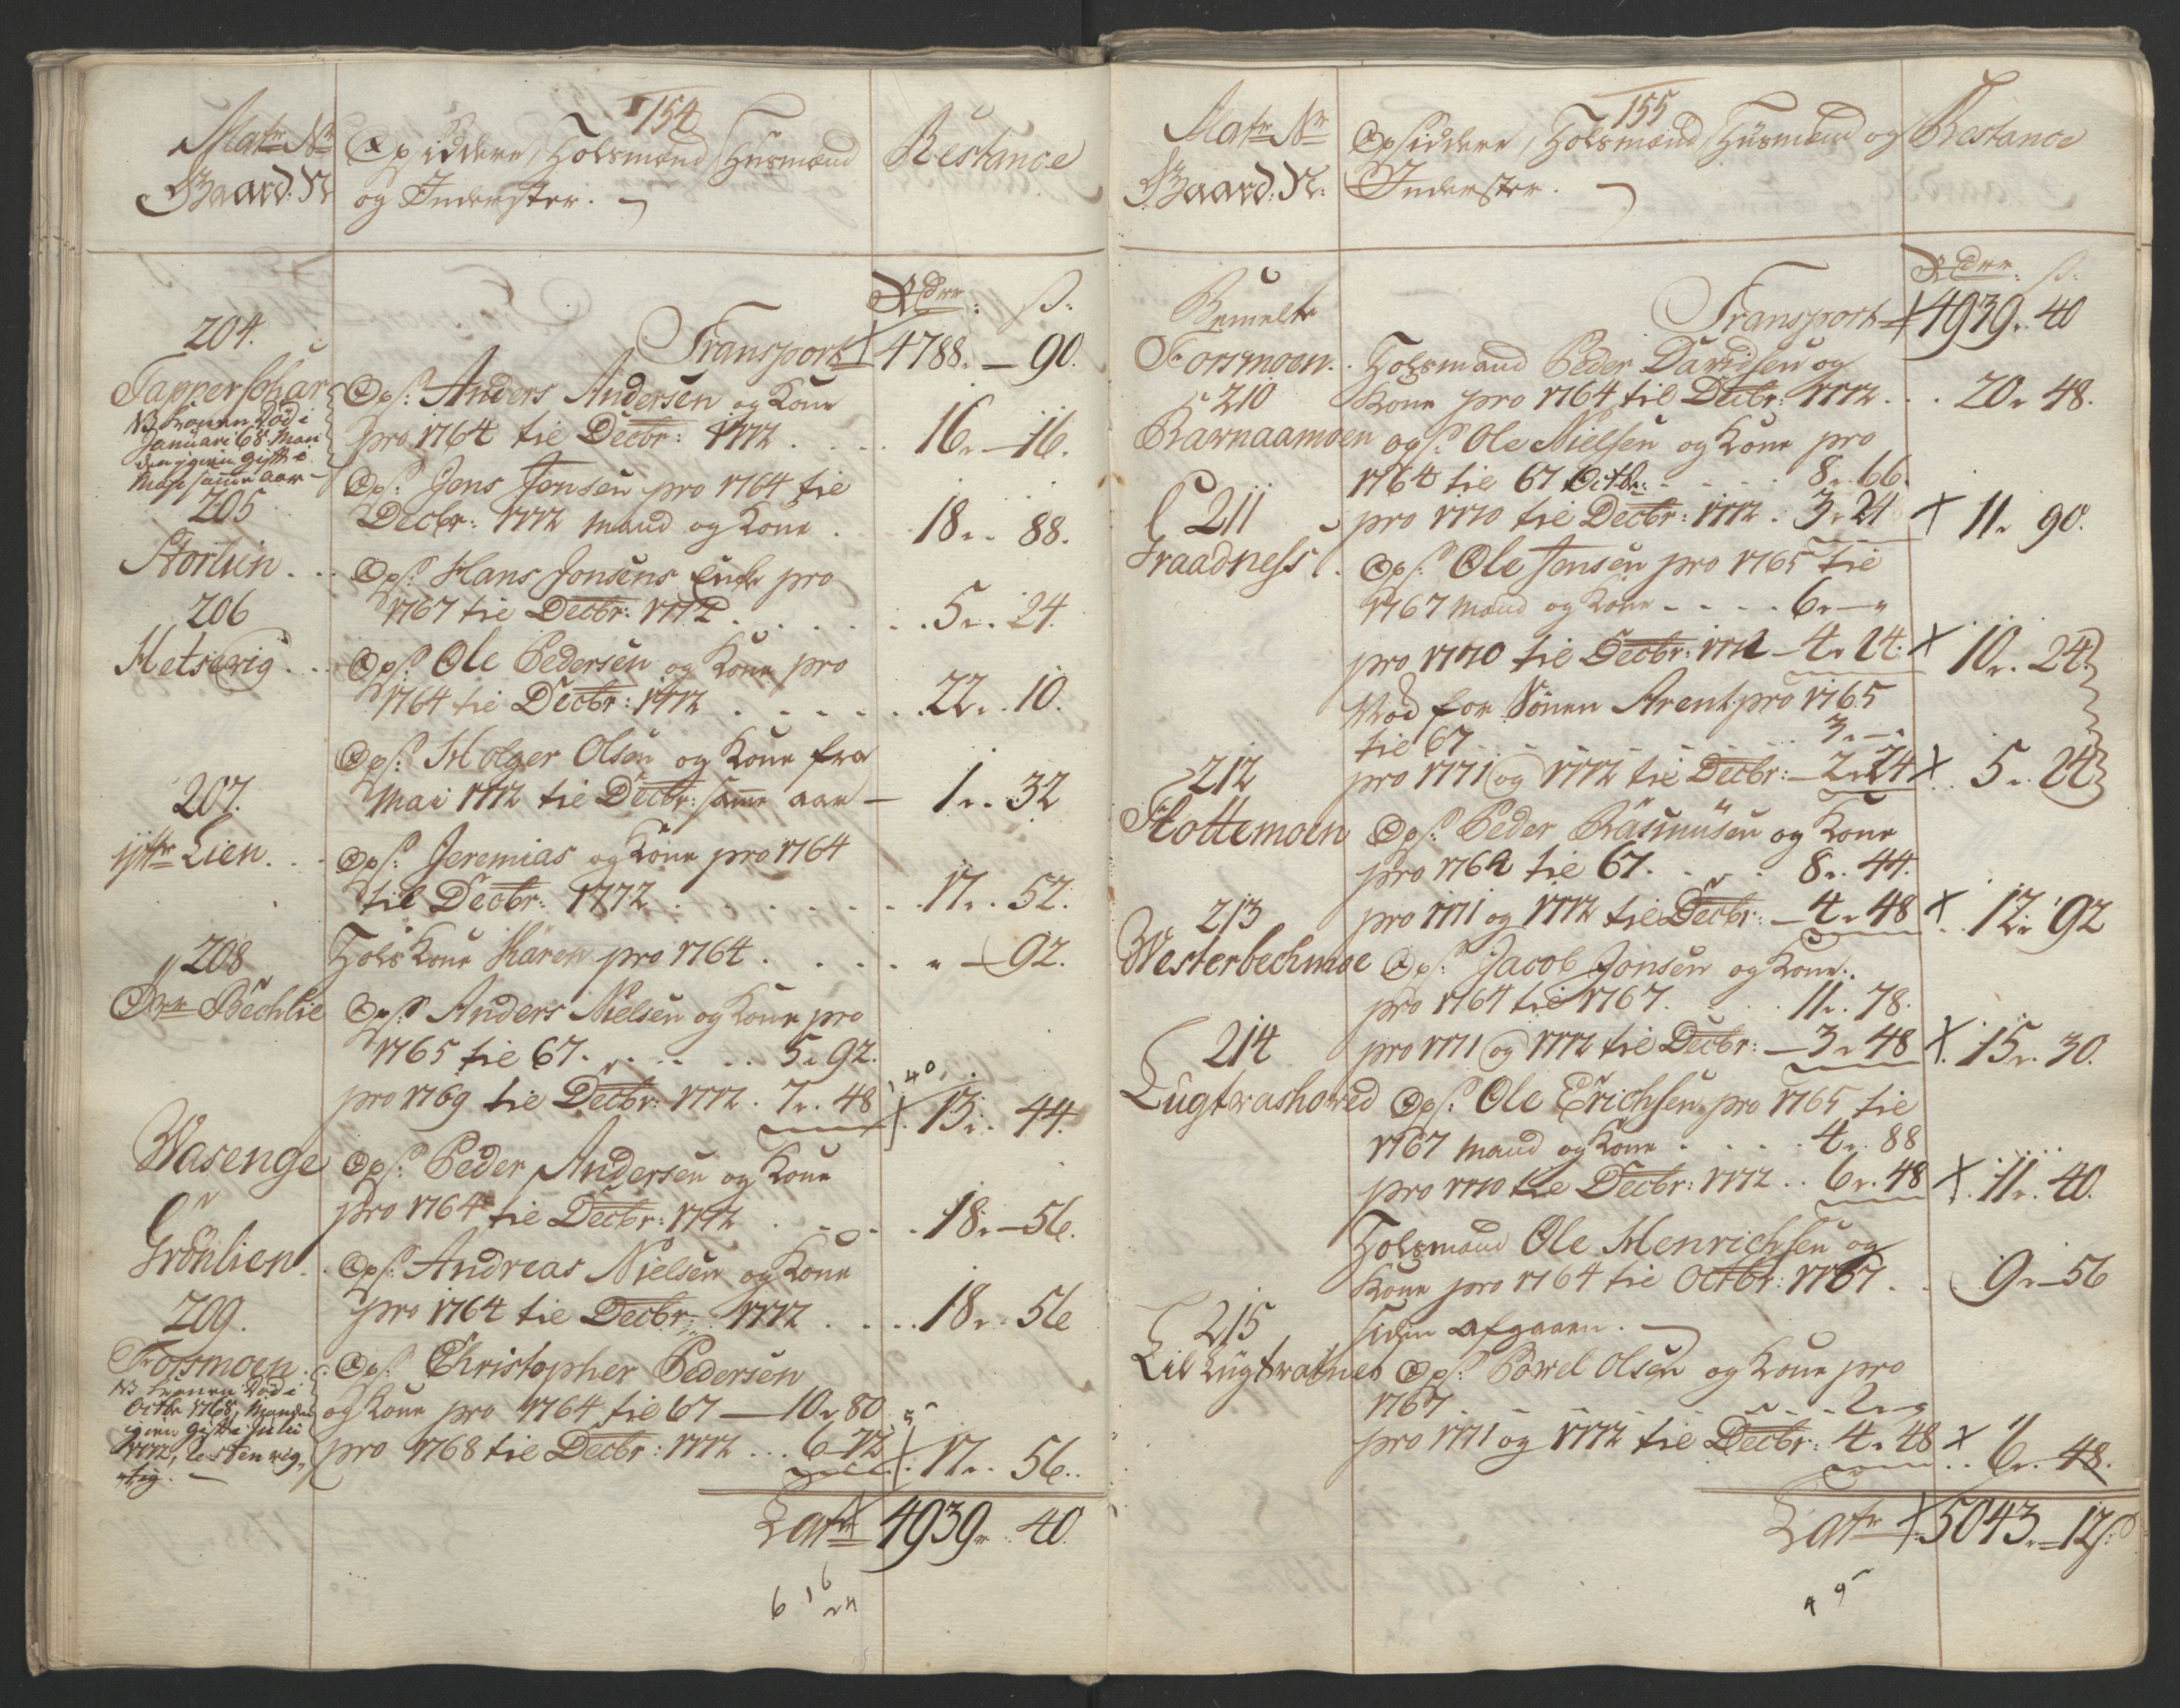 154
Matr: Nr
Gaard: N
Opsiddere, Holsmænd Huusmænd
og Inderster.
Restance
Rdlr: ß:
Transport 4788. — 90.
204.
Tapperschar
NB Konen Död i
Januari 68. Man
den igien gift i
Maji samme aar
Ops: Anders Andersen og Kone
pro 1764 til Decbr: 1772 . . . . 16. — 16.
Ops: Jens Jensen pro 1764 til
Decbr: 1772 Mand og Kone . . . 18. . 88.
205
Storlien . . .
Ops: Hans Jonsens Enke pro
1767 til Decbr: 1772 . . . . . . . 5. . 24.
206
Hetsvig . . .
Ops: Ole Pedersen og Kone pro
1764 til Decbr: 1772 . . . . . . 22. . 10.
Ops: Holger Olsen og Kone fra
Mai 1772 til Decbr: samme aar — 1. . 32
207.
yttr Lien . . .
Ops: Jeremias og Kone pro 1764
til Decbr: 1772 . . . . . . . . 17. . 52.
Hols Kone Karen pro 1764 . . . . . „ — 92.
208
Øvr Bechlie
Ops: Anders Nielsen og Kone pro
1765 til 67. . . . . . 5. 92.
pro 1769 til Decbr: 1772 . 7. . 48 13. . 44.
40
Wasenge
Ops: Peder Andersen og Kone
pro 1764 til Decbr: 1772 . . . . 18. — 56.
Grönlien . .
Ops: Andreas Nielsen og Kone
pro 1764 til Decbr: 1772 . . . . 18. . 56
209.
Forsmoen . .
NB Konen Död i
Octbr 1768, Manden
igien gift i Julii
1772, Resten rig„
tig. —
Ops: Christopher Pedersen
og Kone pro 1764 til 67 — 10. 80
pro 1768 til Decbr: 1772 . . . 6 — 72 17. . 56. .
Latr 4939. . 40.
6 16
24
155
Matr Nr
Gaard: N:
Opsiddere, Holsmænd, Huusmænd og
Inderster.
Restance
Rdlr: ß:
Transport 4939. . 40
Bemelte
Forsmoen. .
Holsmand Peder Davidsen og
Kone pro 1764 til Decbr: 1772 . . . 20. 48.
210
Barnaamoen
Ops: Ole Nielsen og Kone pro
1764 til 67 Octbr: - - - - - 8. 66.
pro 1770 til Decbr: 1772 . 3. 24 X 11. 90.
211
Fraadness .
Ops: Ole Jensen pro 1765 til
1767 Mand og Kone - - - - 6. — „
pro 1770 til Decbr: 1772 — 4. 24. X 10. . 24.
Nød for Sönen Arent pro 1765
til 67 . . . . . . . . 3. — „
pro 1771 og 1772 til Decbr: — 2. 24 X . 5. . 24
212
Flottemoen
Ops: Peder Rasmusen og Kone
pro 1762 til 67. . . . . 8. . 44.
pro 1771 og 1772 til Decbr: — 4. 48 X . 12. 92
213
Westerbechmoe
Ops: Jacob Jonsen og Kone.
pro 1764 til 1767. . . . . 11. . 78.
pro 1771 og 1772 til Decbr: — 3. 48 X . 15. . 30.
214
Lugtrashoved
Ops: Ole Erichsen pro 1765 til
1767 Mand og Kone . . . . . 4. . 88
pro 1770 til Decbr: 1772 . . 6. . 48 X . 11. . 40.
Holsmand Ole Henrichsen og
Kone pro 1764 til Octbr: 1767 . . 9. — 56
siden afgaaen. —
215
Lil Lugtratnes
Ops: Powel Olsen og Kone pro
1767 . . . . . . . . . 2. — „
pro 1771 og 1772 til Decbr: 4. 48 X . . 6. . 48.
Latr X 5043. — 12 ß: